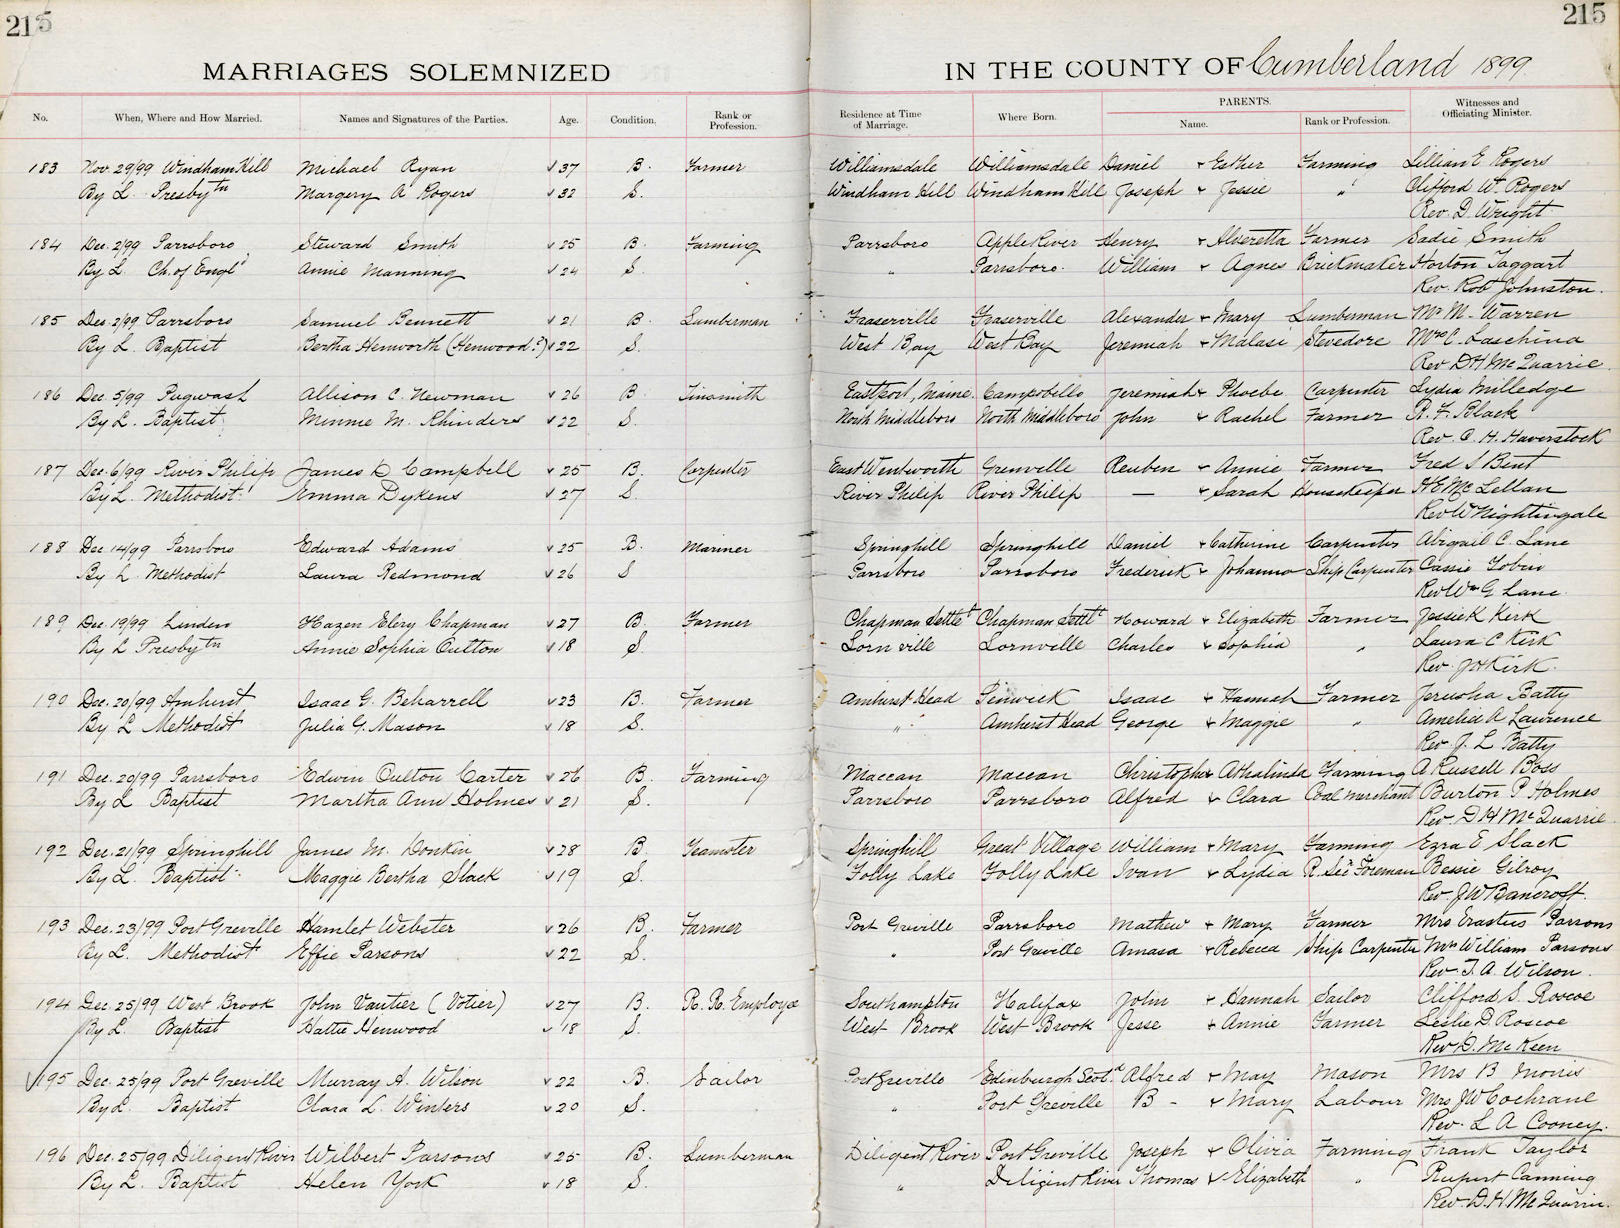 215 215
MARRIAGES SOLEMNIZED IN THE COUNTY OF Cumberland 1899
No. When, Where and How Married. Names and Signatures of the Parties. Age. Condition. Rank or Profession. Residence at Time of Marriage. Where Born. PARENTS. Name. Rank or Profession. Witnesses and Officiating Minister.
183 Nov. 29/99 Windham Hill Michael Ryan √ 37 B. Farmer Williamsdale Williamsdale Daniel + Esther Farming Lillian E Rogers
By L. Presbytn Margery A Rogers √ 32 S. Windham Hill Windham Hill Joseph + Jessie " Clifford W. Rogers
Rev. D. Wright
184 Dec. 2/99 Parrsboro Steward Smith √ 25 B. Farming Parrsboro Apple River Henry + Alveretta Farmer Sadie Smith
By L. Ch. of Engld Annie Manning √ 24 S. " Parrsboro. William + Agnes Brickmaker Horton Taggart
Rev. Robt Johnston.
185 Dec. 2/99 Parrsboro Samuel Bennett √ 21 B. Lumberman Fraserville Fraserville Alexander + Mary Lumberman Mr M. Warren
By L. Baptist Bertha Henworth (Henwood?) √ 22 S. West Bay West Bay Jeremiah + Malasi Stevedore Mrs C. Laschina
Rev. D H McQuarrie
186 Dec. 5/99 Pugwash Allison C. Newman √ 26 B. Tinsmith Eastport, Maine. Campobello Jeremiah + Phoebe Carpenter Lydia Milledge
By L. Baptist Minnie M. Rhinders √ 22 S. North Middleboro North Middleboro John + Rachel Farmer R. F. Black
Rev. C. H. Haverstock
187 Dec. 6/99 River Philip James D Campbell √ 25 B. Carpenter East Wentworth Grenville Reuben + Annie Farmer Fred S Bent
By L. Methodist. Emma Dykens √ 27 S. River Philip River Philip — + Sarah Housekeeper H E McLellan
Rev W Nightingale
188 Dec 14/99 Parrsboro Edward Adams √ 25 B. Mariner Springhill Springhill Daniel + Catherine Carpenter Abigail C. Lane
By L. Methodist Laura Redmond √ 26 S Parrsboro Parrsboro Frederick + Johanna Ship Carpenter Cassie Tobin
Rev Wm G Lane.
189 Dec. 19/99 Linden Hazen Elery Chapman √ 27 B. Farmer Chapman Settlet Chapman Settlt Howard + Elizabeth Farmer Jessie K Kirk
By L Presbytn Annie Sophia Oulton √ 18 S. Lornville Lornville Charles + Sophia " Laura C Kirk
Rev. J H Kirk.
190 Dec. 20/99 Amherst Isaac G. Beharrell √ 23 B. Farmer Amherst Head Fenwick Isaac + Hannah Farmer Jerusha Batty
By L Methodist Julia G. Mason √ 18 S. " Amherst Head George + Maggie " Amelia A Lawrence
Rev. J. L Batty
191 Dec. 20/99 Parrsboro Edwin Oulton Carter √ 26 B. Farming Maccan Maccan Christopher + Athalinda Farming A Russell Boss
By L Baptist Martha Ann Holmes √ 21 S. Parrsboro Parrsboro Alfred + Clara Coal Merchant Burton P Holmes
Rev. D H McQuarrie
192 Dec. 21/99 Springhill James M. Donkin √ 28 B. Teamster Springhill Great Village William + Mary Farming Ezra E Slack
By L. Baptist Maggie Bertha Slack √ 19 S. Folly Lake Folly Lake Ivan + Lydia R. Sec Foreman Bessie Gilroy
Rev. J W Bancroft.
193 Dec. 23/99 Port Greville Hamlet Webster √ 26 B. Farmer Port Greville Parrsboro Mathew + Mary Farmer Mrs Erastus Parsons
By L. Methodist Effie Parsons √ 22 S. " Port Greville Amasa + Rebecca Ship Carpenter Mrs William Parsons
Rev. T. A. Wilson.
194 Dec. 25/99 West Brook John Vautier (Votier) √ 27 B. R. R. Employe Southampton Halifax John + Hannah Sailor Clifford S. Roscoe
By L. Baptist Hattie Henwood √ 18 S. West Brook West Brook Jesse + Annie Farmer Leslie D. Roscoe
Rev D. McKeen
√195 Dec. 25/99 Port Greville Murray A. Wilson √ 22 B. Sailor Port Greville Edinburgh Scotd Alfred + May Mason Mrs B Morris
By L. Baptist Clara L. Winters √ 20 S. " Port Greville B - + Mary Labour Mrs J W Cochrane
Rev. L A Cooney.
196 Dec. 25/99 Diligent River Wilbert Parsons √ 25 B. Lumberman Diligent River Port Greville Joseph + Olivia Farming Frank Taylor
By L. Baptist Helen York √ 18 S. " Diligent River Thomas + Elizabeth " Rupert Canning
Rev. D. H. McQuarrie.